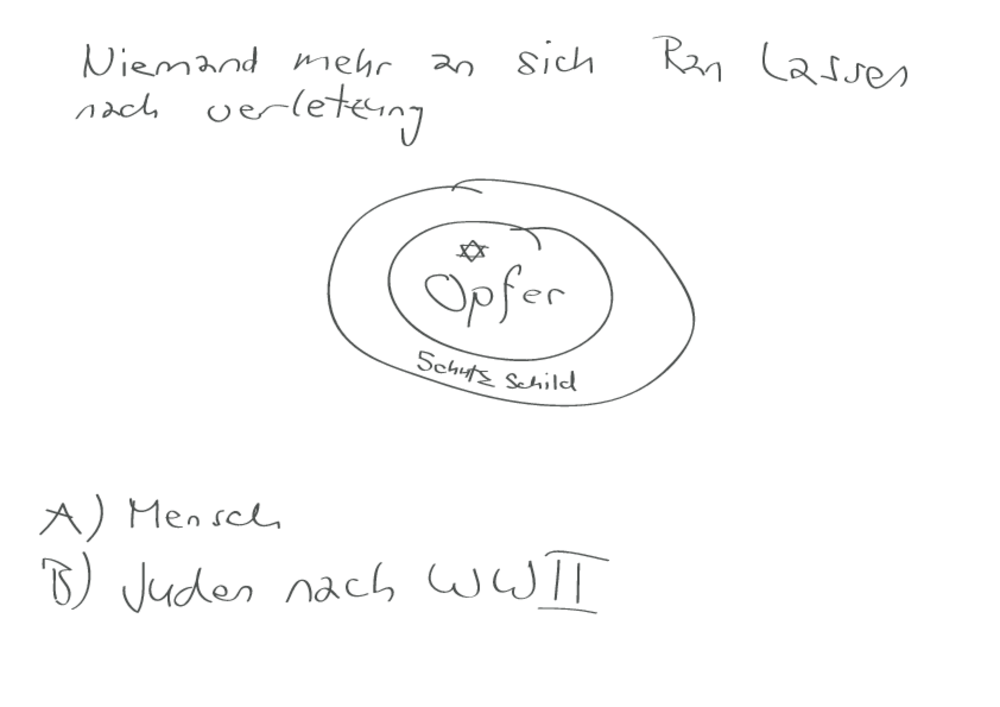 Niemand mehr an sich Ran Lassen
nach verletzung
Opfer
Schutz Schild
A) Mensch
B) Juden nach WWII